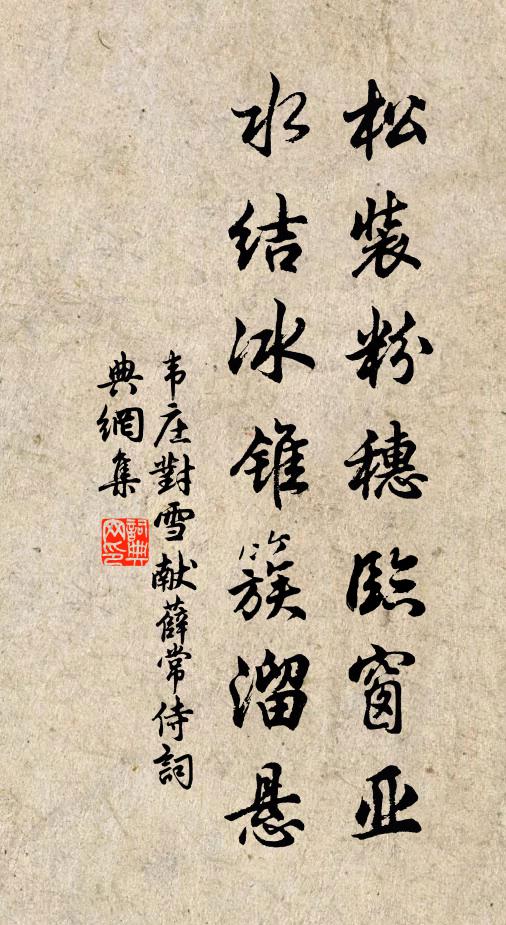 松装粉穗臨窗亚
水结冰锥簇溜悬
韦庄對雪献薛常侍詞
典網集
詞典
网印